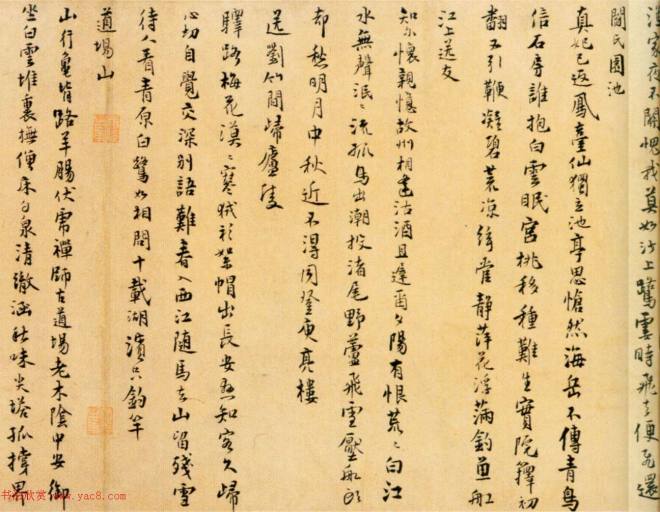 深家夜不關愧我莫如沙上鷺雲時飛去便飛還
閻氏園池
真妃已返鳳臺仙獨立池亭思愴然海岳不傳青鳥
信石房誰抱白雲眠宮桃移種難生實院籜初
翻不引鞭凝碧荒涼絃管靜萍花浮滿釣魚船
江上送友
知爾懷親憶故州相逢沽酒且遲留夕陽有恨荒〻白江
水無聲泯〻流孤鳥出潮投渚尾野蘆飛雪壓船頭
却愁明月中秋近不得同登庾亮樓
送劉竹間歸廬陵
驛路梅花漠〻寒狨衫絮帽出長安忽知客久歸
心切自覺交深別語難春入西江隨馬去山留殘雪
待人看青原白鷺如相問十載湖濱只釣竿
道場山
山行龜背路羊腸伏虎禪師古道場老木陰中安御
坐白雲堆裏撫僧床勺泉清徹涵秋味尖塔孤撐界
书法欣赏 www.yac8.com